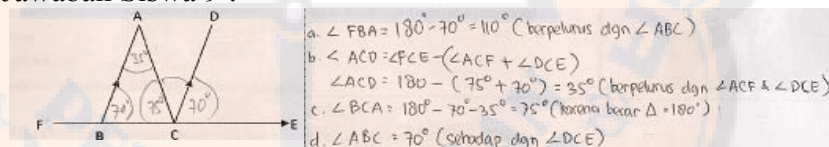 A D
35°
70° 75° 70°
F B C E
a. ∠ FBA = 180° - 70° = 110° (berpelurus dgn ∠ ABC)
b. ∠ ACD = ∠FCE - (∠ACF + ∠DCE)
∠ACD = 180 - (75° + 70°) = 35° (berpelurus dgn ∠ACF & ∠DCE)
c. ∠ BCA = 180° - 70° - 35° = 75° (karena besar Δ = 180°)
d. ∠ ABC = 70° (sehadap dgn ∠DCE)